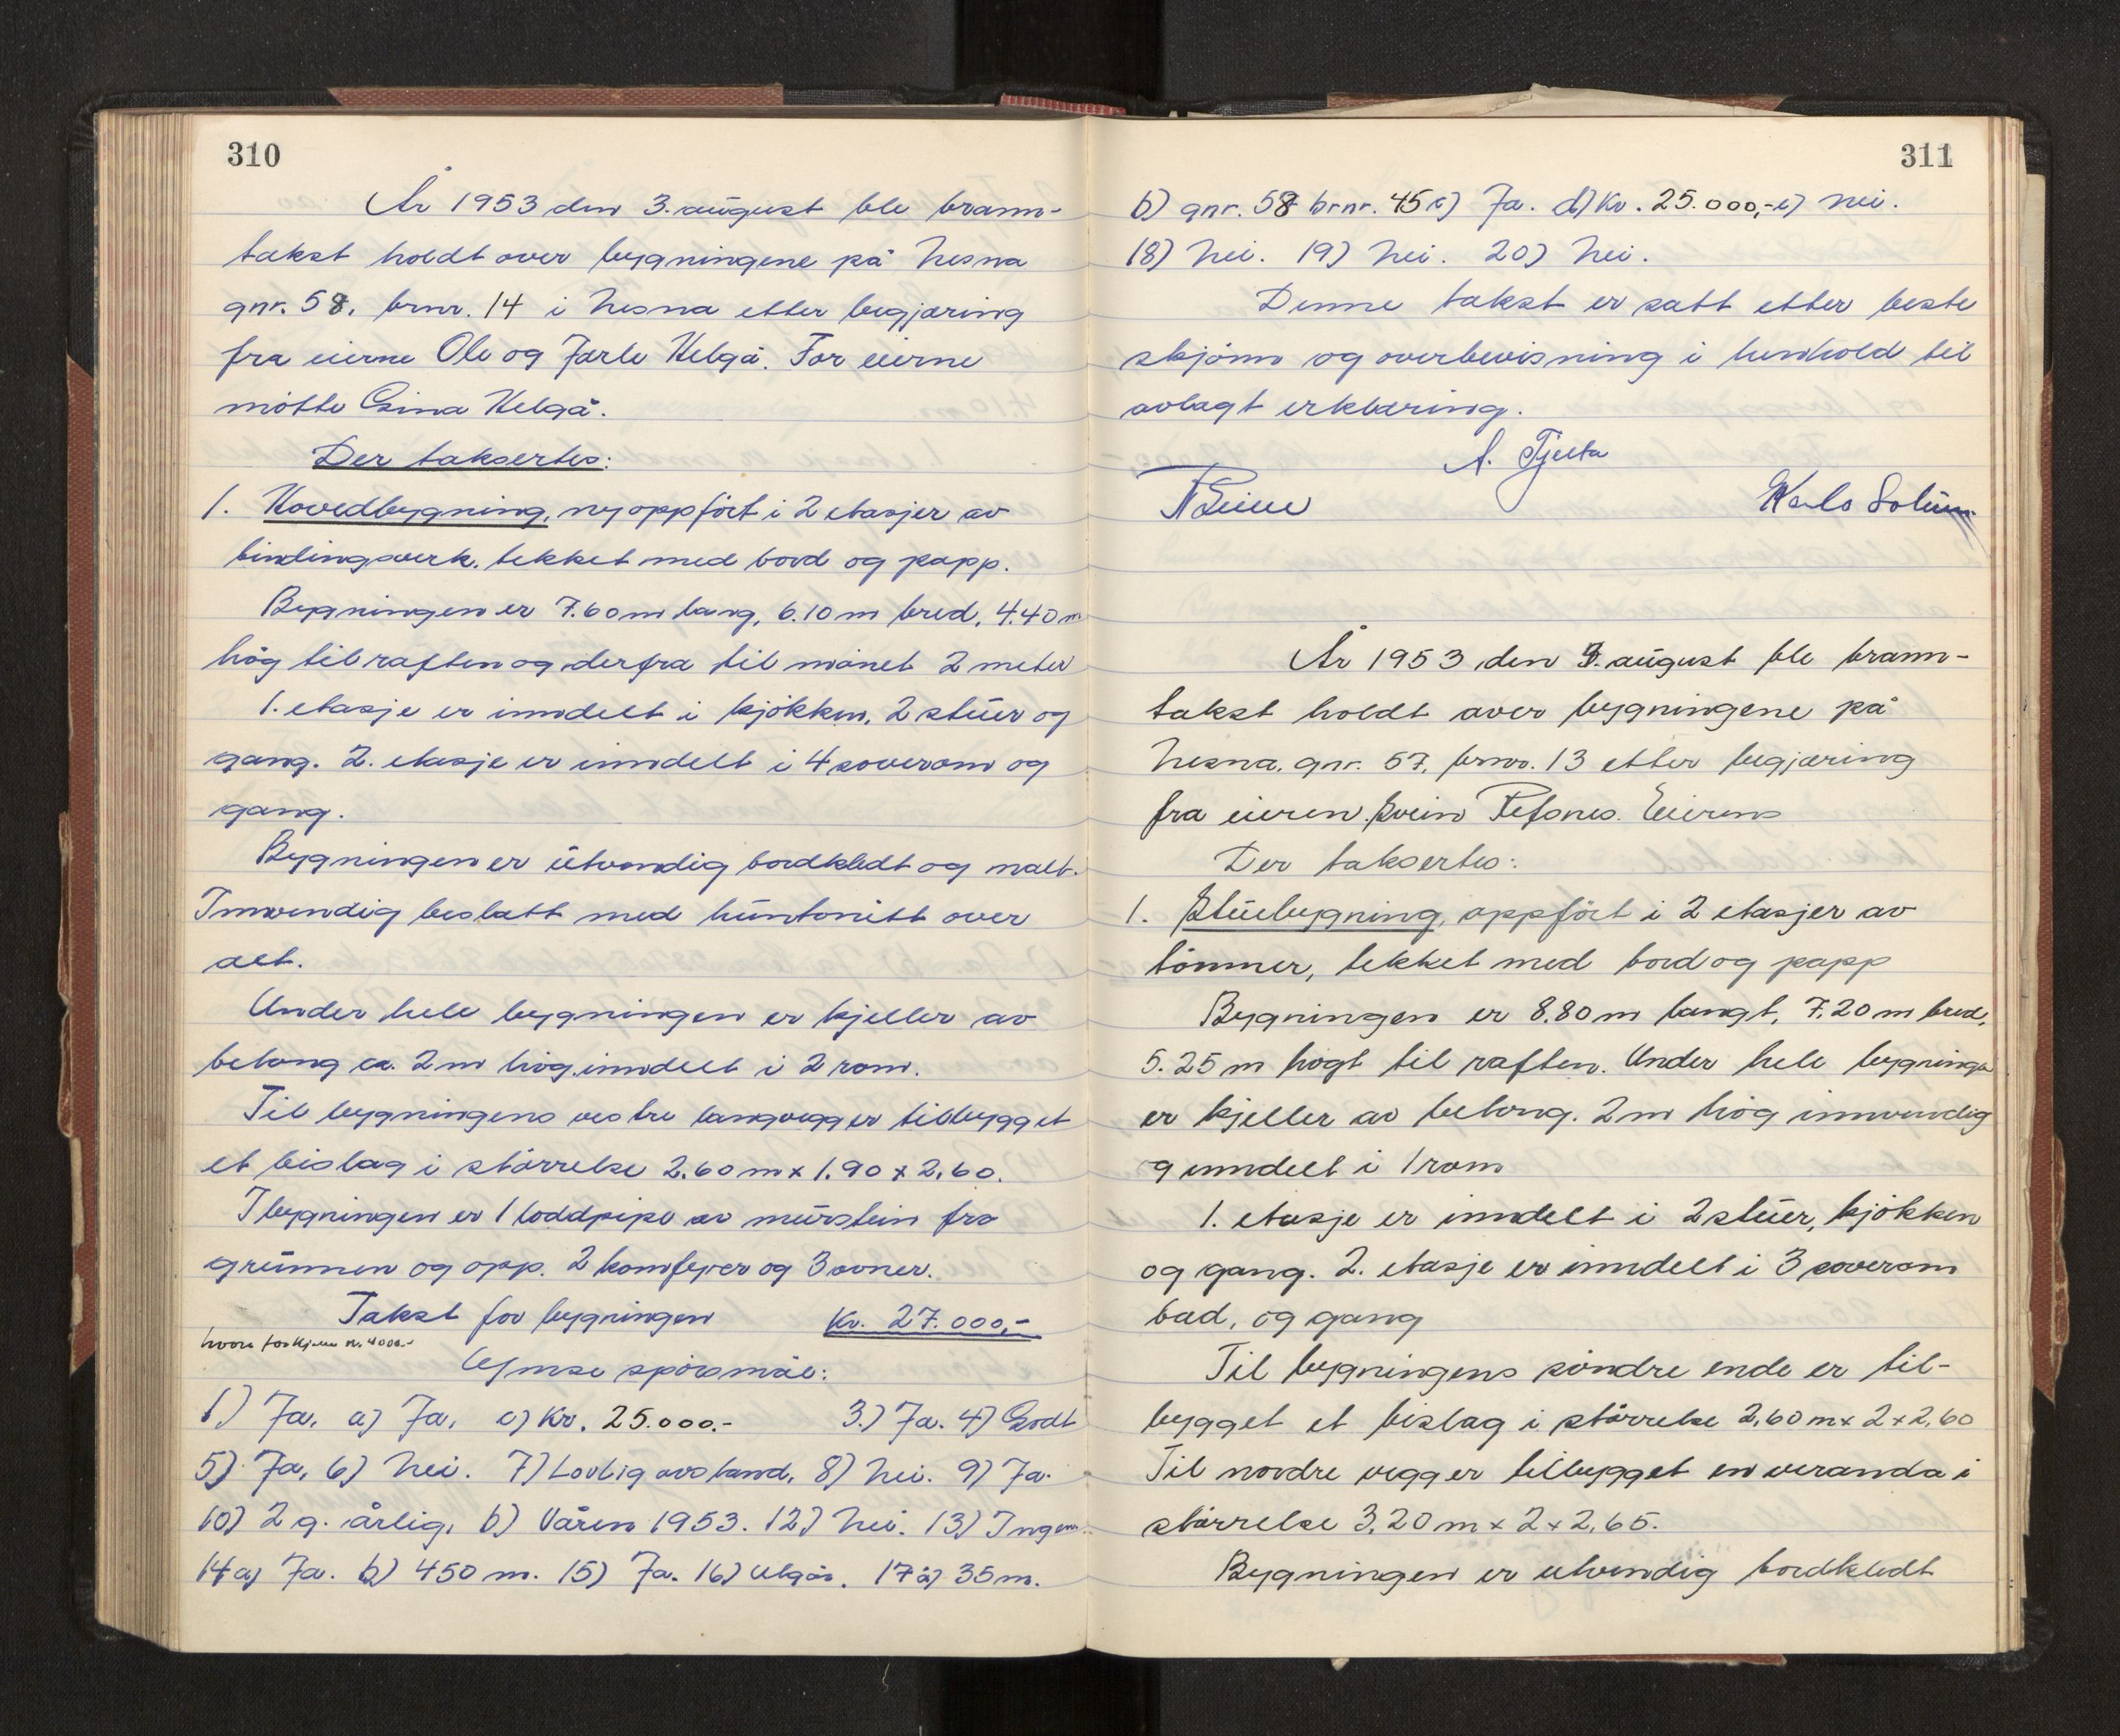 310
År 1953 den 3. august ble brann-
takst holdt over bygningene på Nesna
gnr. 58, brnr. 14 i Nesna etter begjæring
fra eierne Ole og Jarle Helgå. For eierne
møtte Gina Helgå.
Der taksertes:
1. Hovedbygning, ny oppført i 2 etasjer av
bindingsverk, tekket med bord og papp.
Bygningen er 7.60 m lang, 6.10 m bred, 4.40 m
høg til raften og derfra til mønet 2 meter
1. etasje er inndelt i kjøkken, 2 stuer og
gang. 2. etasje er inndelt i 4 soverom og
gang.
Bygningen er utvendig bordkledt og malt.
Innvendig beslått med huntonitt over
alt.
Under hele bygningen er kjeller av
betong ca. 2 m høg, inndelt i 2 rom.
Til bygningens vestre langvegg er tilbygget
et bislag i størrelse 2.60 m x 1.90 x 2.60.
I bygningen er 1 loddpipe av murstein fra
grunnen og opp. 2 komfyrer og 3 ovner.
Takst for bygningen Kr. 27.000,-
hvora for kjeller kr. 4000.-
Ymse spørsmål:
1) Ja. a) Ja. c) Kr. 25.000.- 3.) Ja. 4) Godt
5) Ja, 6) Nei. 7) Lovlig avstand, 8) Nei. 9) Ja.
10) 2 g. årlig, b) Våren 1953. 12) Nei. 13) Ingen.
14 a) Ja. b) 450 m. 15) Ja. 16) Utgår. 17 a) 35 m.
311
b) gnr. 58 brnr. 45 c) Ja. d) Kr. 25.000,- e) Nei.
18) Nei. 19) Nei. 20) Nei.
Denne takst er satt etter beste
skjønn og overbevisning i henhold til
avlagt erklæring.
A. Tjelta
Karlo Solum
År 1953 den 3. august ble brann-
takst holdt over bygningene på
Nesna, gnr. 57, brnr. 13 etter begjæring
fra eieren Svein Refsnes. Eierens
Der taksertes:
1. Stuebygning, oppført i 2 etasjer av
tømmer, tekket med bord og papp
Bygningen er 8.80 m langt, 7.20 m bred,
5.25 m høgt til raften. Under hele bygningen
er kjeller av betong. 2 m høg innvendig
og inndelt i 1 rom
1. etasje er inndelt i 2 stuer, kjøkken
og gang. 2. etasje er inndelt i 3 soverom
bad, og gang
Til bygningens søndre ende er til-
bygget et bislag i størrelse 2,60 m x 2 x 2,60
Til nordre vegg er tilbygget en veranda i
størrelse 3,20 m x 2 x 2,65.
Bygningen er utvendig bordkledt